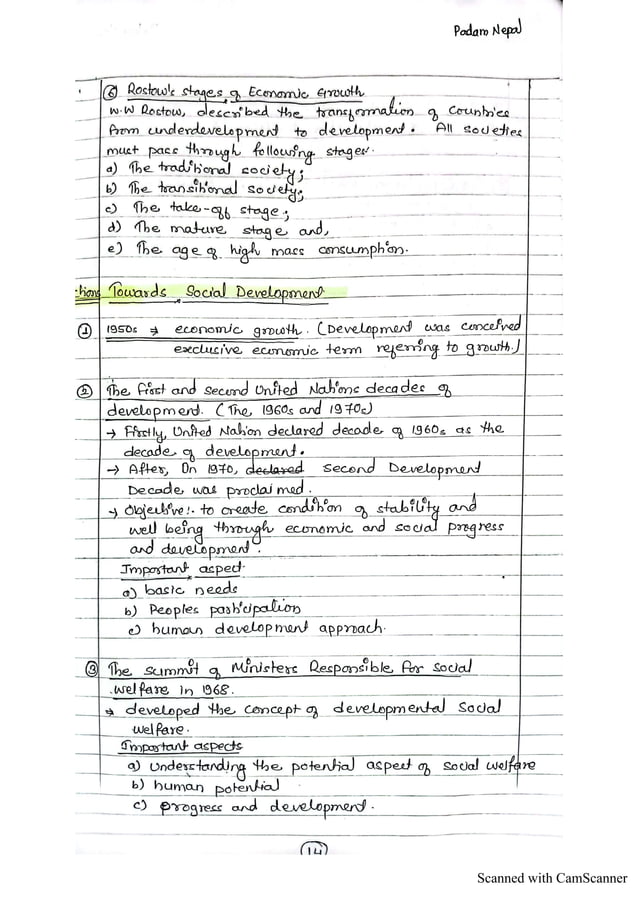 Padam Nepal
⑥ Rostow's stages of Economic Growth
W.W Rostow, described the transformation of Countries
from underdevelopment to development. All societies
must pass through following stages.
a) The traditional society;
b) The transitional society;
c) The take-off stage;
d) The mature stage and,
e) The age of high mass consumption.
tions Towards Social Development
① 1950s → economic growth. (Development was conceived
exclusive economic term referring to growth.)
② The first and second United Nations decades of
development. (The 1960s and 1970s)
→ Firstly, United Nation declared decade of 1960s as the
decade of development.
→ After, On 1970, declared second Development
Decade was proclaimed.
→ Objective:- to create condition of stability and
well being through economic and social progress
and development.
Important aspect.
a) basic needs
b) Peoples participation
c) human development approach.
③ The summit of Ministers Responsible for social
welfare in 1968.
→ developed the concept of developmental social
welfare.
Important aspects
a) Understanding the potential aspect of social welfare
b) human potential
c) progress and development.
14
Scanned with CamScanner